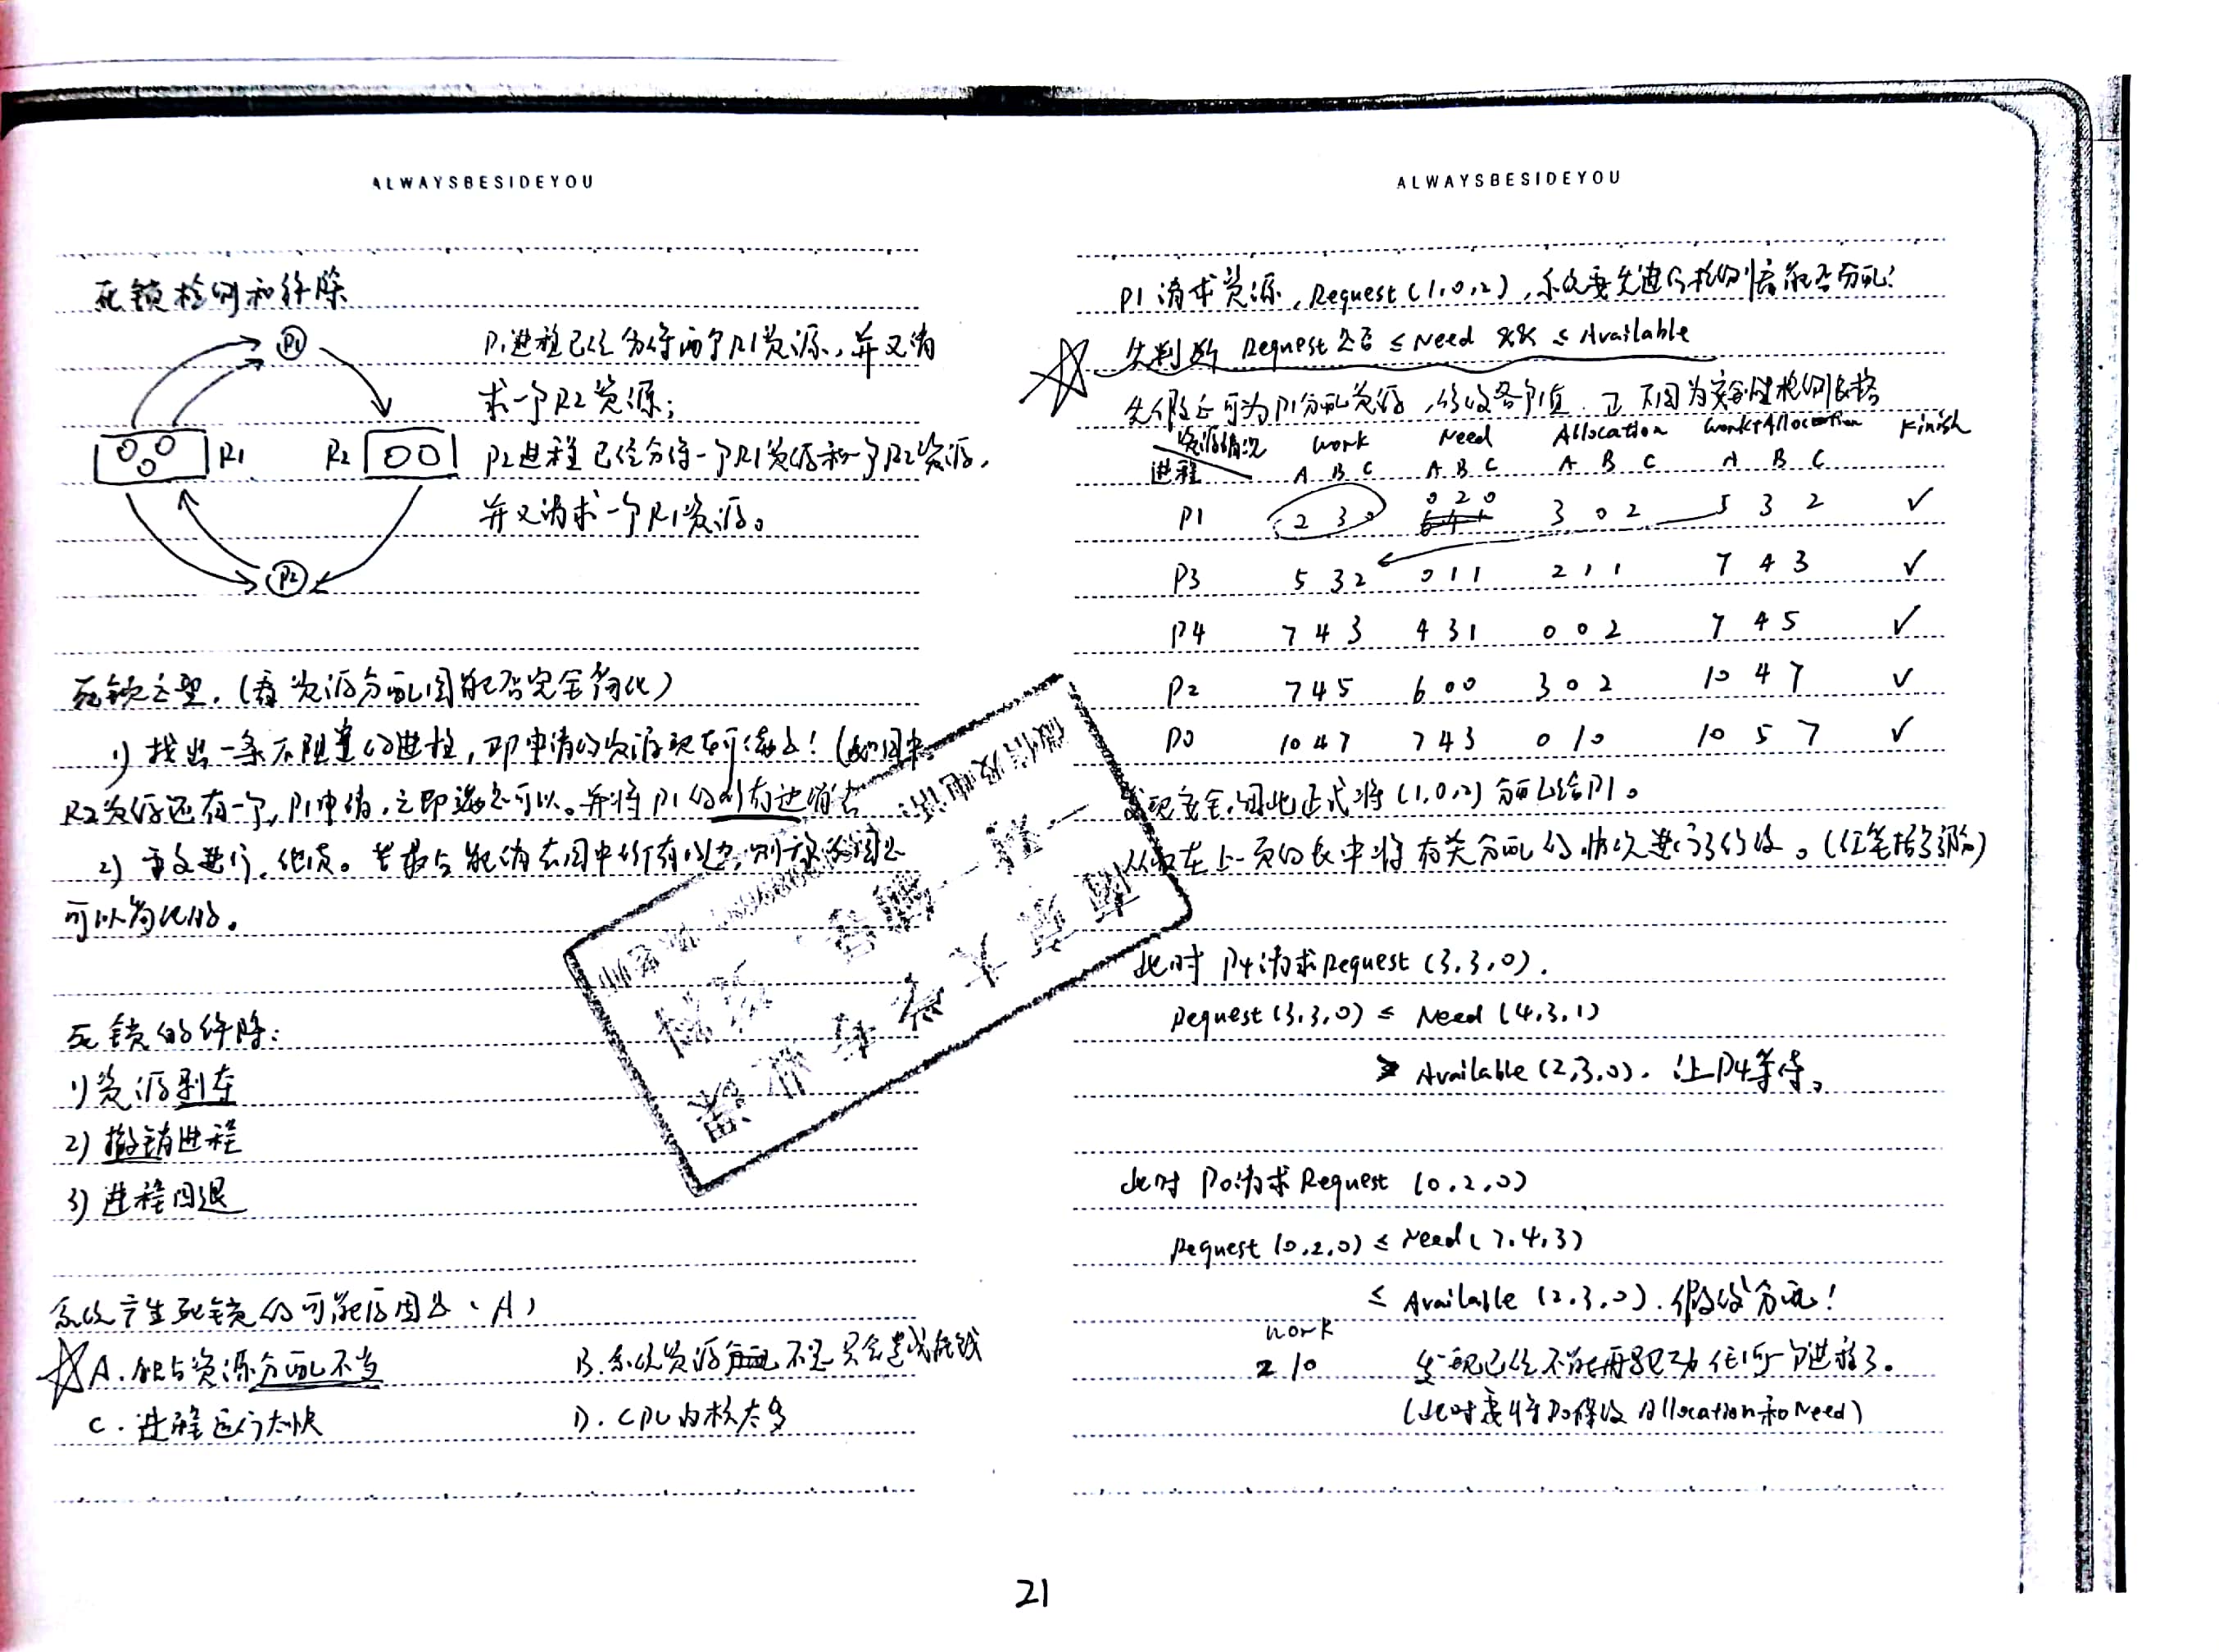 ALWAYSBESIDEYOU
死锁检测和解除
P1
P1进程已经分得两个R1资源，并又请
求一个R2资源；
R1
R2
P2进程已经分得一个R1资源和一个R2资源，
并又请求一个R1资源。
P2
死锁定理.(看资源分配图能否完全简化)
1) 找出一条不阻塞的进程，即申请的资源现在可满足！(如图中
R2资源还有一个，P1申请，立即满足可以。并将P1的所有边消去
2) 重复进行. 化质。若最后能消去图中所有的边，则称该图是
可以简化的。
死锁的解除：
1) 资源剥夺
2) 撤销进程
3) 进程回退
系统产生死锁的可能原因是（A）
A. 独占资源分配不当
B. 系统资源 不足 只会造成死锁
C. 进程运行太快
D. CPU内核太多
ALWAYSBESIDEYOU
P1请求资源，Request(1,0,2)，系统要先进行检测看能否分配！
先判断 Request是否 ≤ Need && ≤ Available
先假定可为P1分配资源，修改各个值. 因为安全性检测表格
资源情况 Work Need Allocation Work+Allocation Finish
进程 A B C A B C A B C A B C
P1 2 3 0 0 2 0 3 0 2 5 3 2 ✓
P3 5 3 2 0 1 1 2 1 1 7 4 3 ✓
P4 7 4 3 4 3 1 0 0 2 7 4 5 ✓
P2 7 4 5 6 0 0 3 0 2 10 4 7 ✓
P0 10 4 7 7 4 3 0 1 0 10 5 7 ✓
发现安全，因此正式将(1,0,2)分配给P1。
从而在上一页的表中将有关分配的情况进行了修改。(红笔括了部分)
此时 P4请求Request(3,3,0).
Request(3,3,0) ≤ Need(4,3,1)
> Available(2,3,0). 让P4等待。
此时 P0请求Request (0,2,0)
Request(0,2,0) ≤ Need(7,4,3)
≤ Available(2,3,0). 假设分配！
Work
2 1 0 发现已经不能再 任何一个进程了。
(此时要将P0修改Allocation和Need)
21